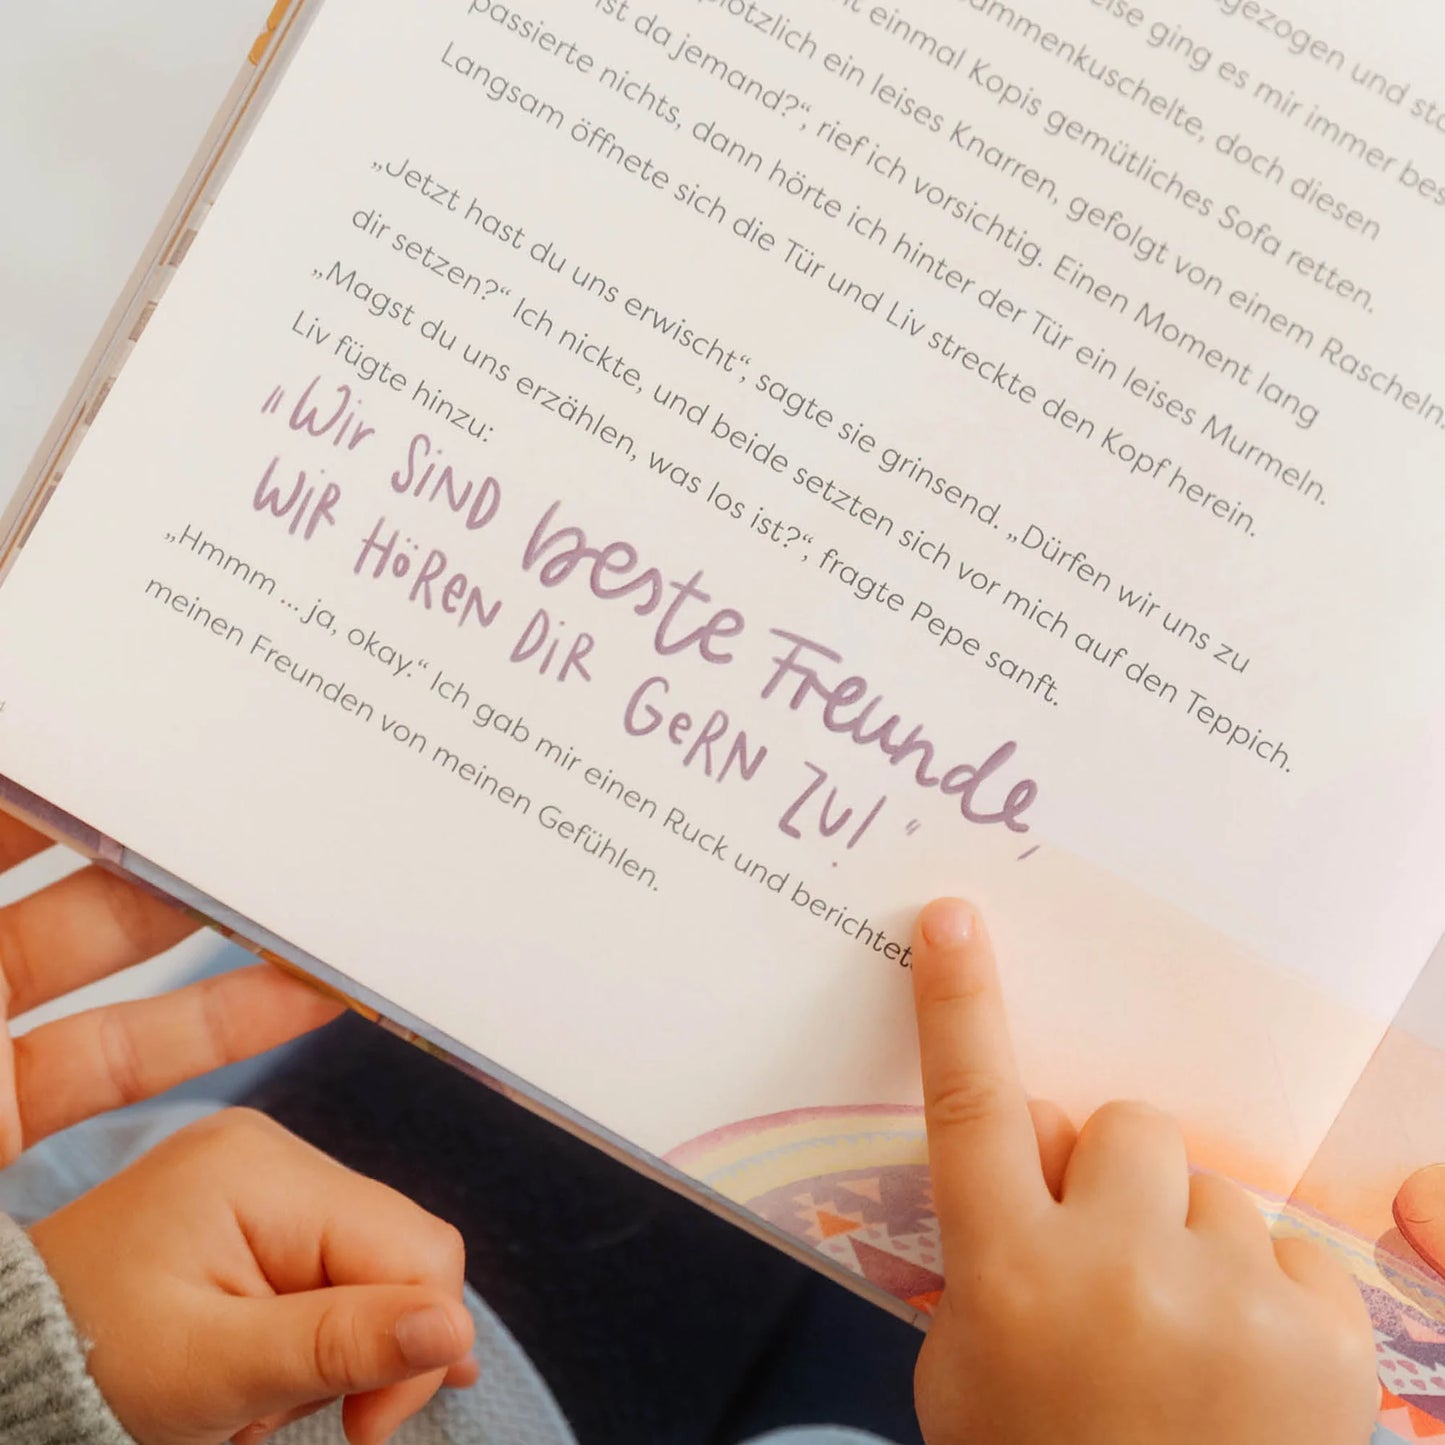 gezogen und
ging es mir immer
ammenkuschelte, doch diesen
einmal Kopis gemütliches Sofa retten.
plötzlich ein leises Knarren, gefolgt von einem Rascheln.
ist da jemand?“, rief ich vorsichtig. Einen Moment lang
passierte nichts, dann hörte ich hinter der Tür ein leises Murmeln.
Langsam öffnete sich die Tür und Liv streckte den Kopf herein.
„Jetzt hast du uns erwischt“, sagte sie grinsend. „Dürfen wir uns zu
dir setzen?“ Ich nickte, und beide setzten sich vor mich auf den Teppich.
„Magst du uns erzählen, was los ist?“, fragte Pepe sanft.
Liv fügte hinzu:
"Wir SIND beste Freunde,
WIR HÖREN DIR GERN ZU!"
„Hmmm ... ja, okay.“ Ich gab mir einen Ruck und berichtet
meinen Freunden von meinen Gefühlen.